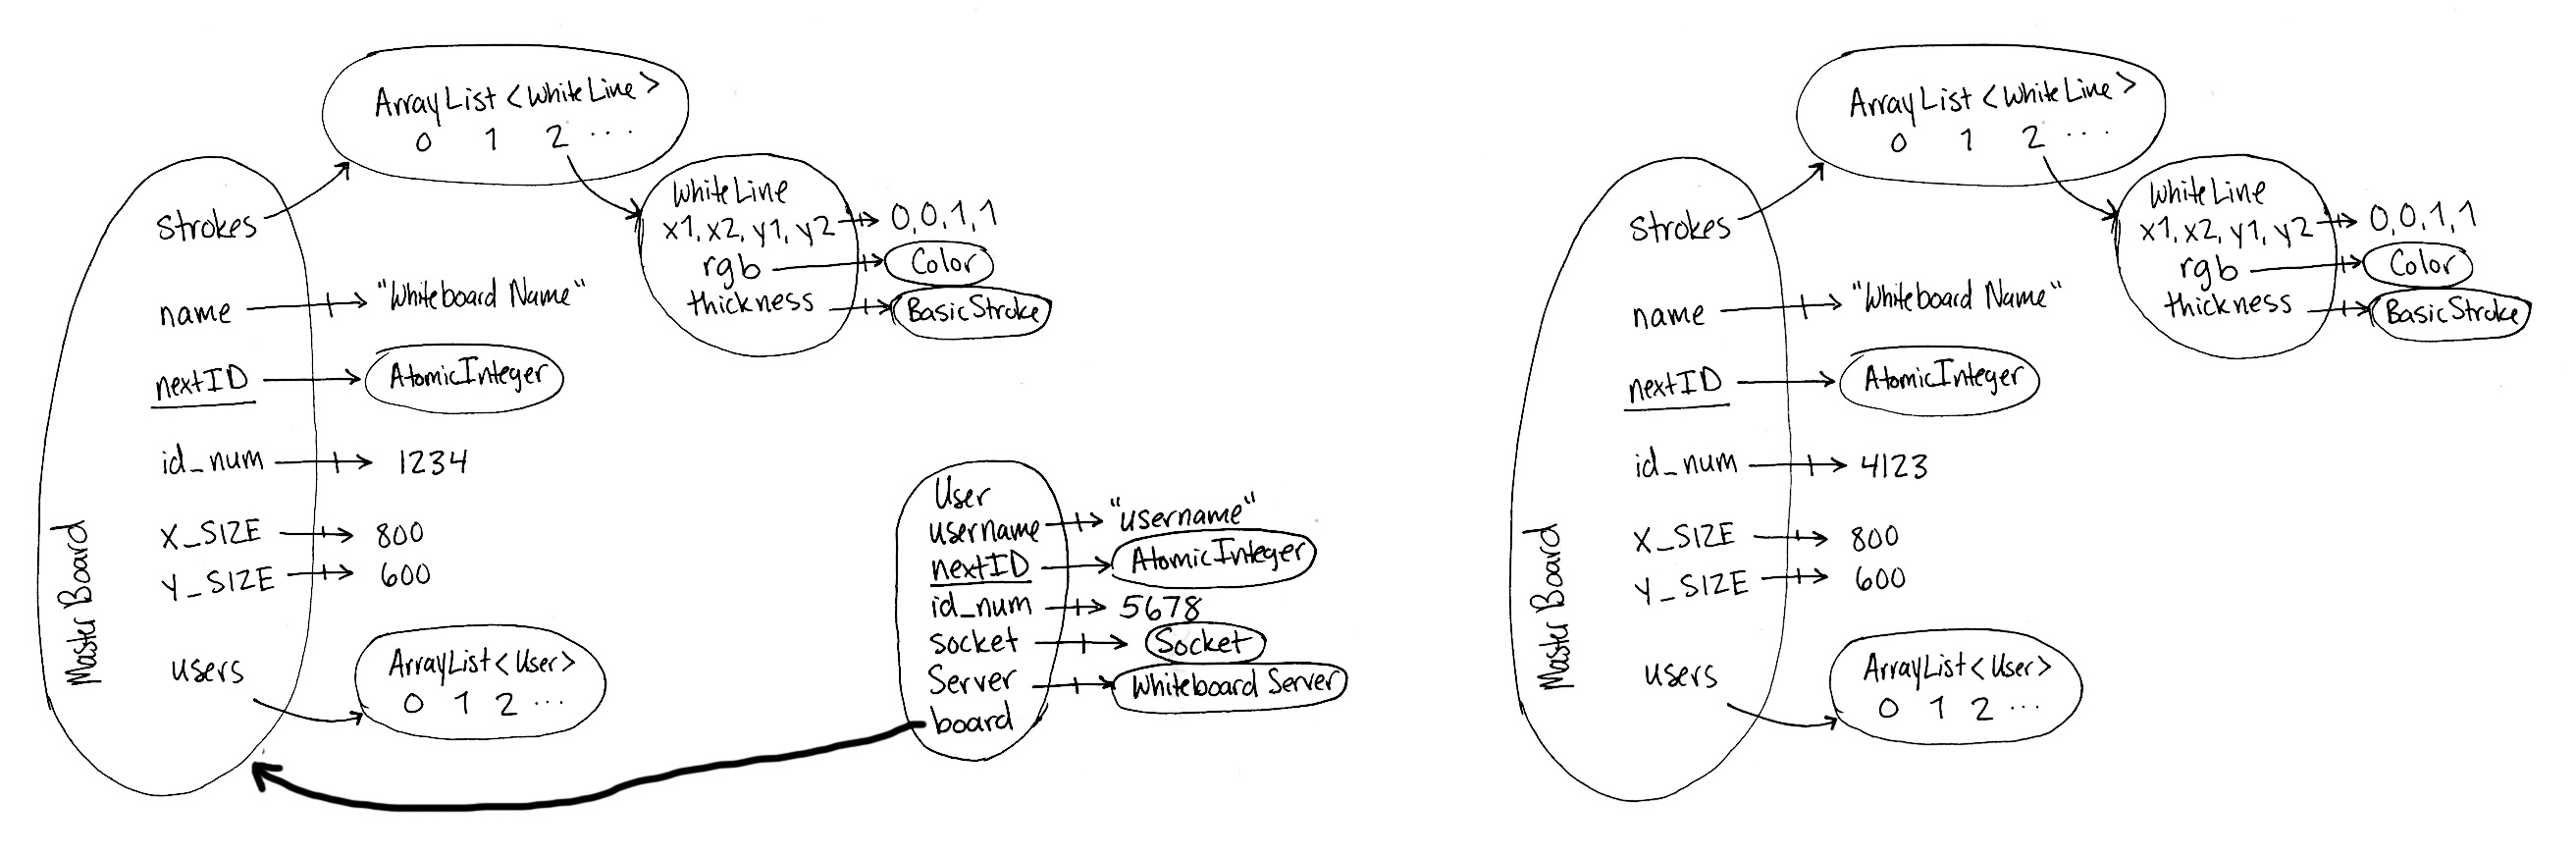 ArrayList <WhiteLine>
0 1 2 ...
WhiteLine
x1, x2, y1, y2 0,0,1,1
rgb Color
thickness BasicStroke
Master Board
strokes
name "Whiteboard Name"
nextID AtomicInteger
id_num 1234
X_SIZE 800
Y_SIZE 600
users
ArrayList<User>
0 1 2 ...
User
username "username"
nextID AtomicInteger
id_num 5678
socket Socket
Server Whiteboard Server
board
ArrayList <WhiteLine>
0 1 2 ...
WhiteLine
x1, x2, y1, y2 0,0,1,1
rgb Color
thickness BasicStroke
Master Board
strokes
name "Whiteboard Name"
nextID AtomicInteger
id_num 4123
X_SIZE 800
Y_SIZE 600
users
ArrayList<User>
0 1 2 ...